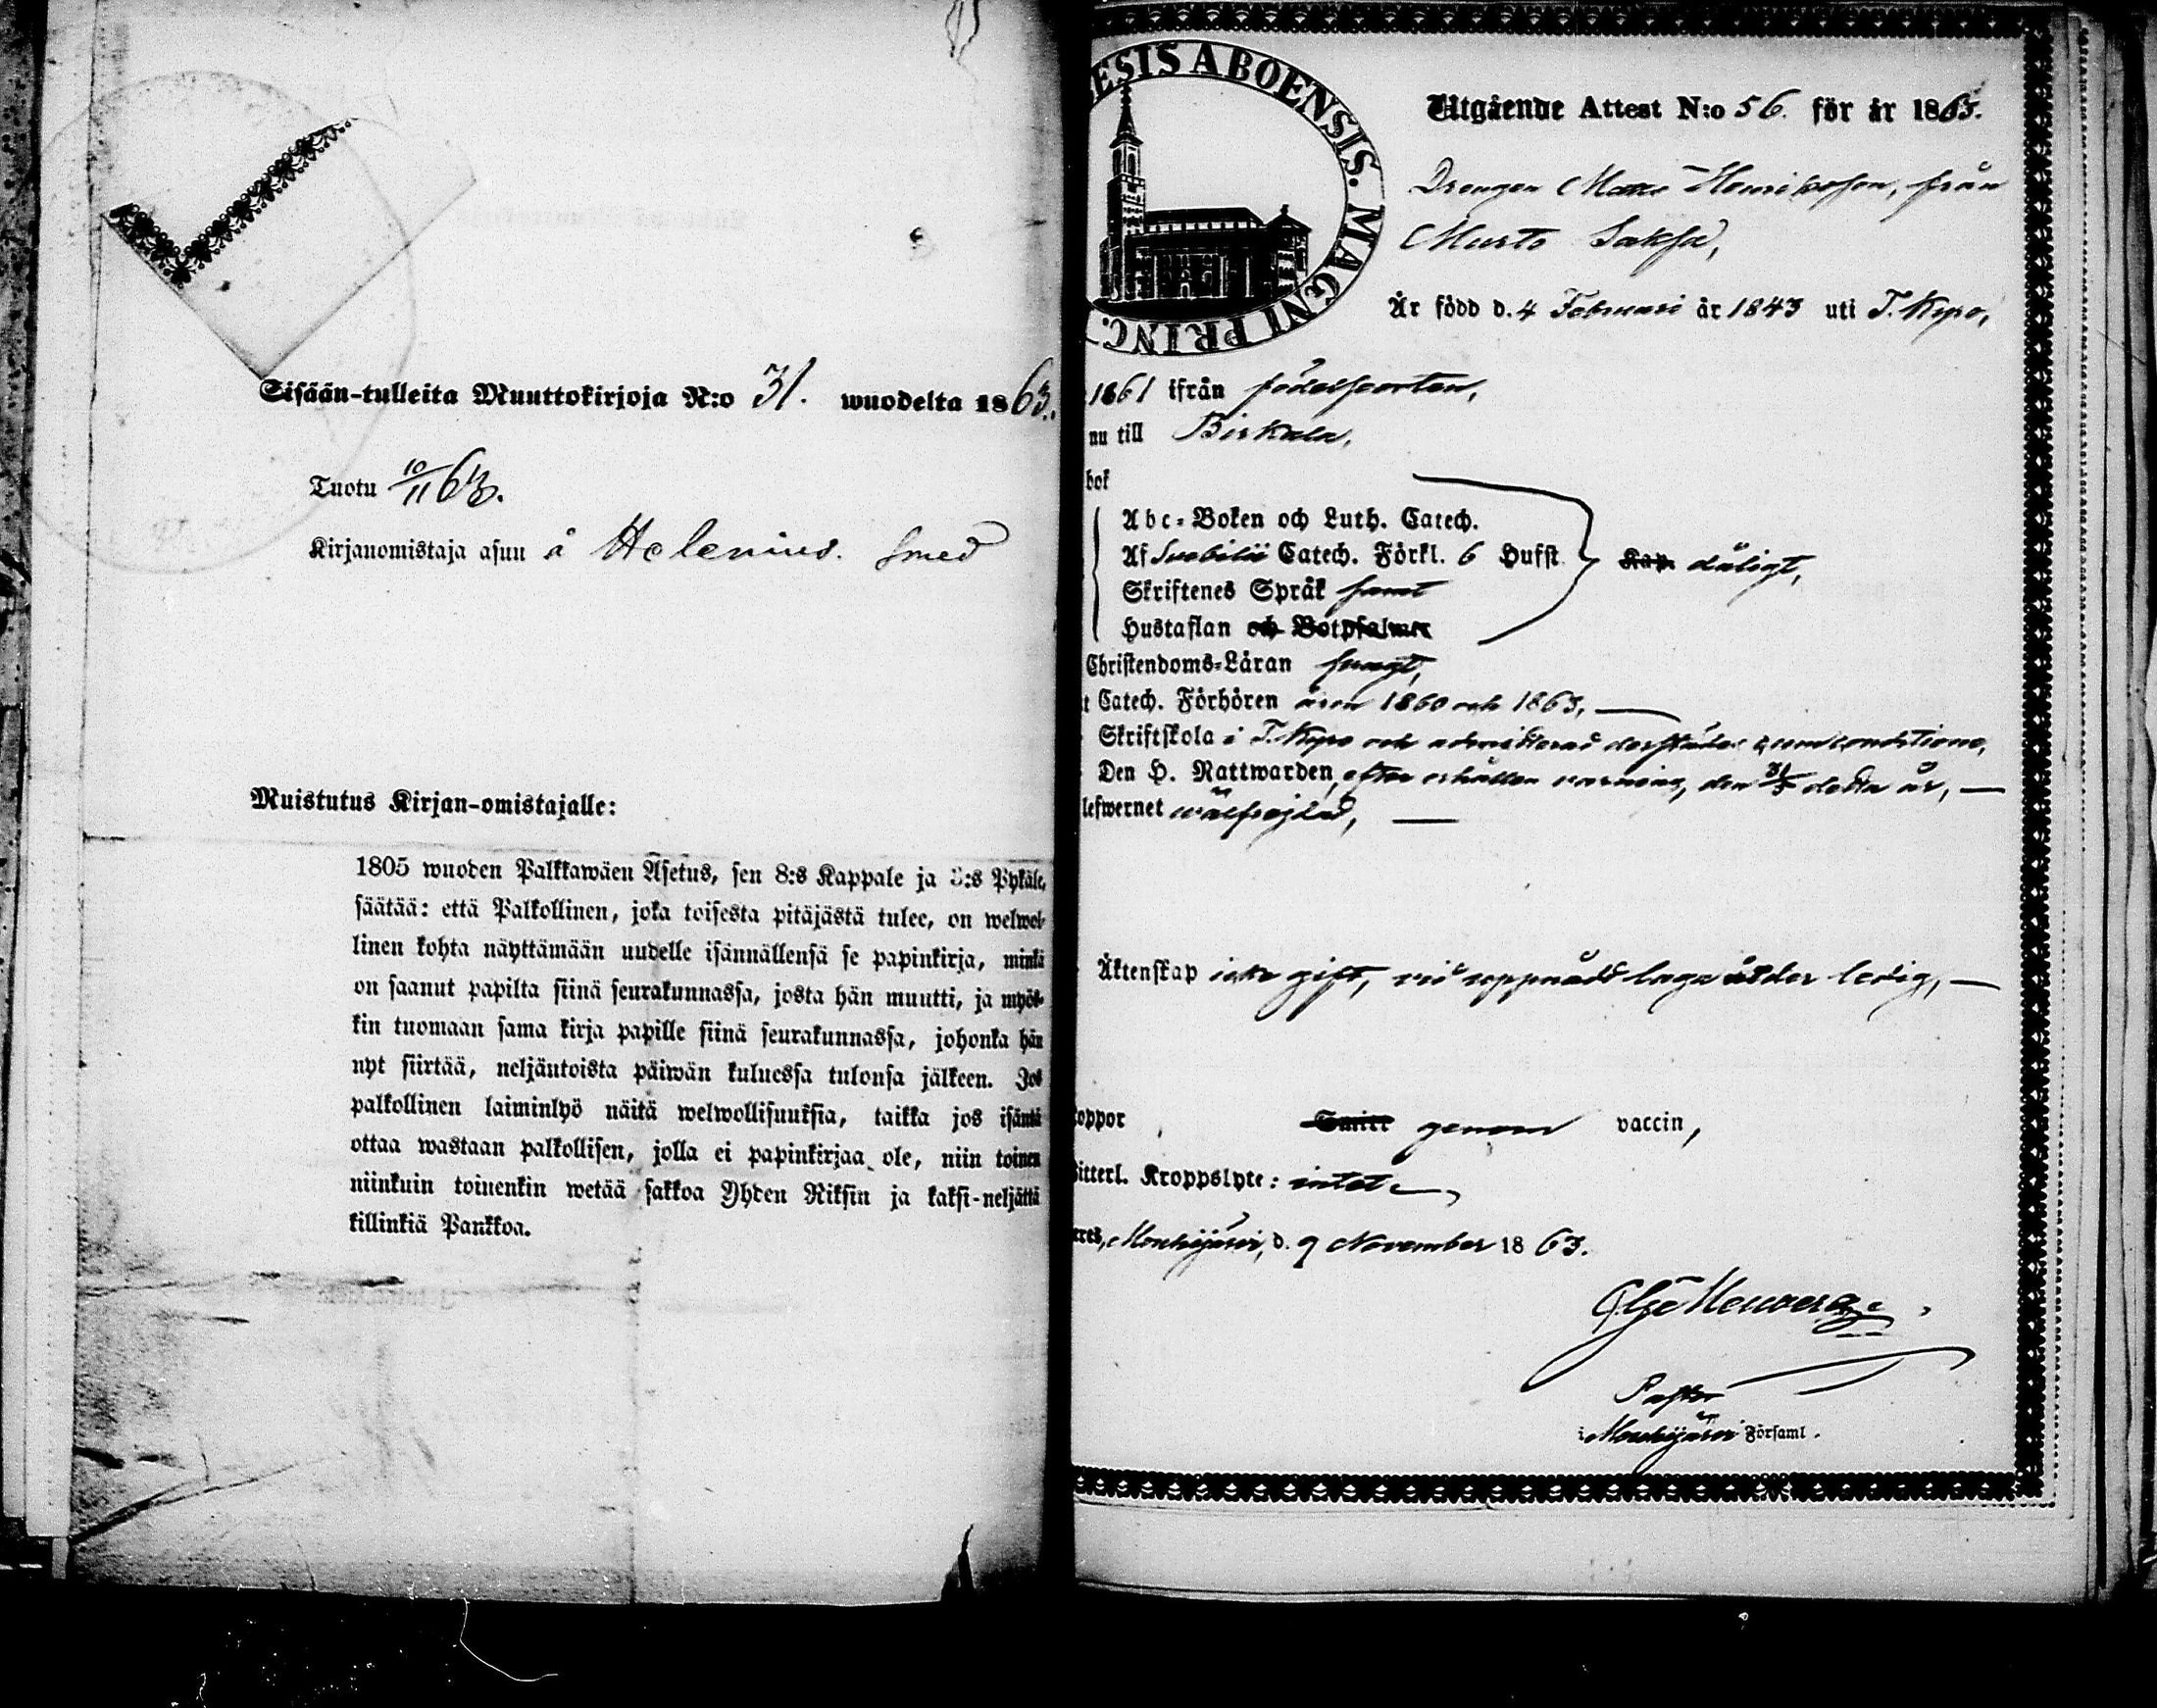 Sisään-tulleita Muuttokirjoja N:o 31. wuodelta 1863.
Tuotu 10/11 63.
Kirjanomistaja asuu å Helenius. Smed
Muistutus Kirjan-omistajalle:
1805 wuoden Palkkawäen Asetus, sen 8:s Kappale ja :s Pykäle,
säätää: että Palkollinen, joka toisesta pitäjästä tulee, on welwol-
linen kohta näyttämään uudelle isännällensä se papinkirja, minkä
on saanut papilta siinä seurakunnassa, josta hän muutti, ja myös-
kin tuomaan sama kirja papille siinä seurakunnassa, johonka hän
nyt siirtää, neljäntoista päiwän kuluessa tulonsa jälkeen. Jos
palkollinen laiminlyö näitä welwollisuuksia, taikka jos isäntä
ottaa wastaan palkollisen, jolla ei papinkirjaa ole, niin toinen
niinkuin toinenkin wetää sakkoa Yhden Riksin ja kaksi-neljättä
killinkiä Pankkoa.
ESIS ABOENSIS. MAGNI PRINC.
Utgående Attest N:o 56. för år 1863.
Drengen Matts Henriksson, från
Musto Saksa,
Är född d. 4 Februari år 1843 uti T. Kyro,
1861 ifrån födelseorten,
nu till Birkala,
bok
Abc-Boken och Luth. Catech.
Af Svebilii Catech. Förkl. 6 Hufst.
Kap. dåligt,
Skriftenes Språk samt
Hustaflan och Botpsalmer
Christendoms-Läran svagt,
t Catech. Förhören åren 1860 och 1863,
Skriftskola i T. Kyro och admitterad derstädes cum conditione,
Den H. Nattwarden, efter erhållen varning, den 31/5 detta år,
lefwernet wälfrejdad,
Äktenskap icke gift, vid uppnådd laga ålder ledig,
koppor genom vaccin,
itterl. Kroppslyte: intet
eres, Mouhijärvi, d. 9 November 1863.
Pastor
i Mouhijärvi Församl.